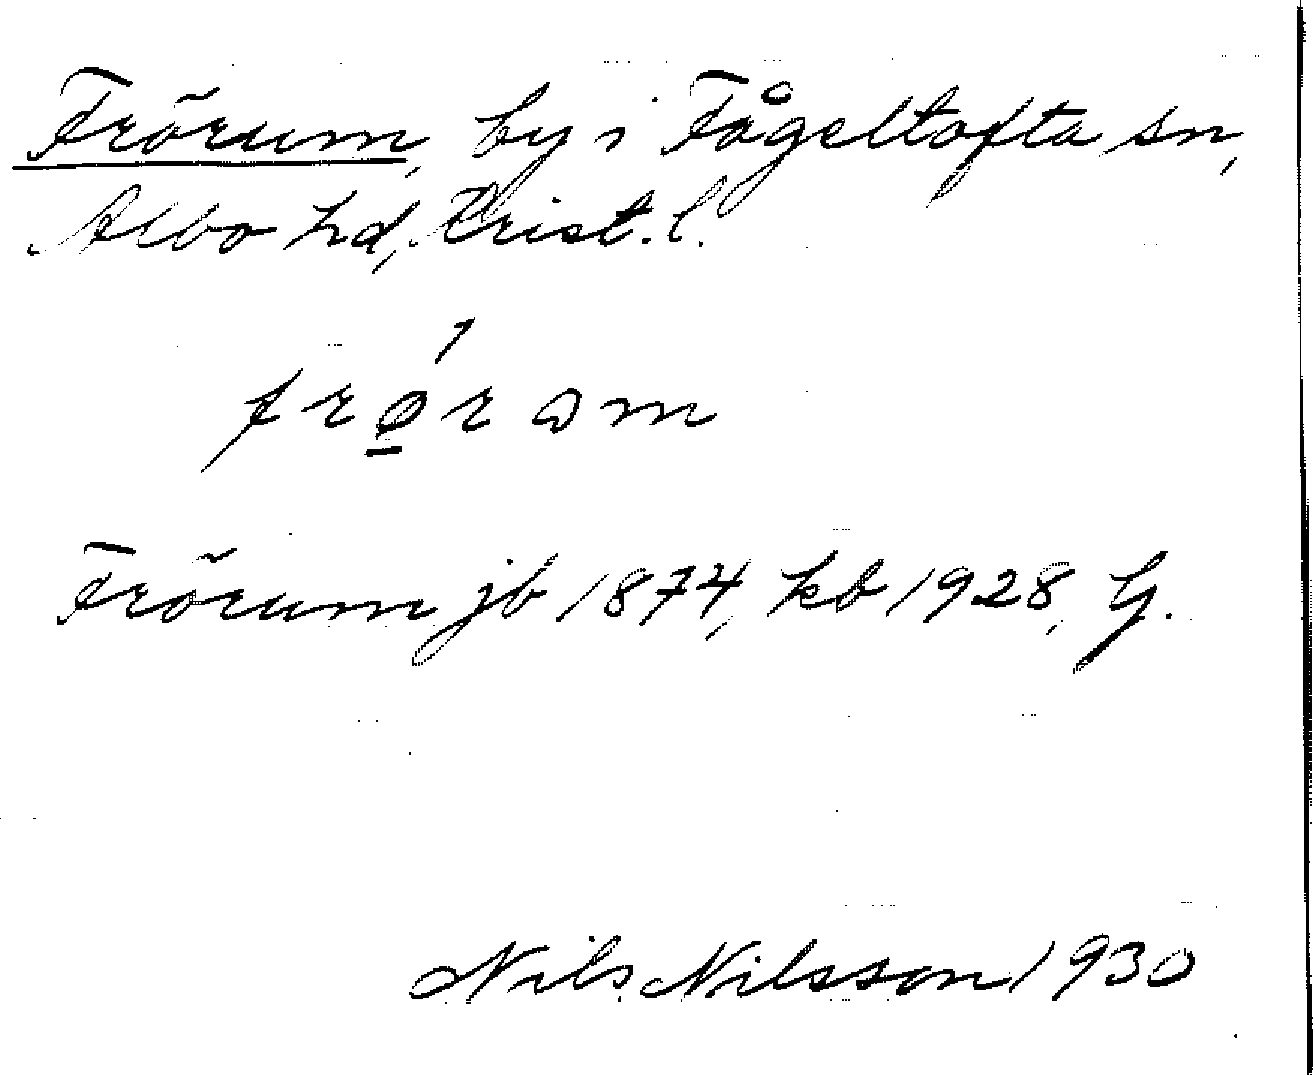 Frörum, by i Fågeltofta sn,
Albo hd, Krist. l.
frǿ̱rɷm
Frörum jb 1874, kb 1928, G.
Nils Nilsson 1930